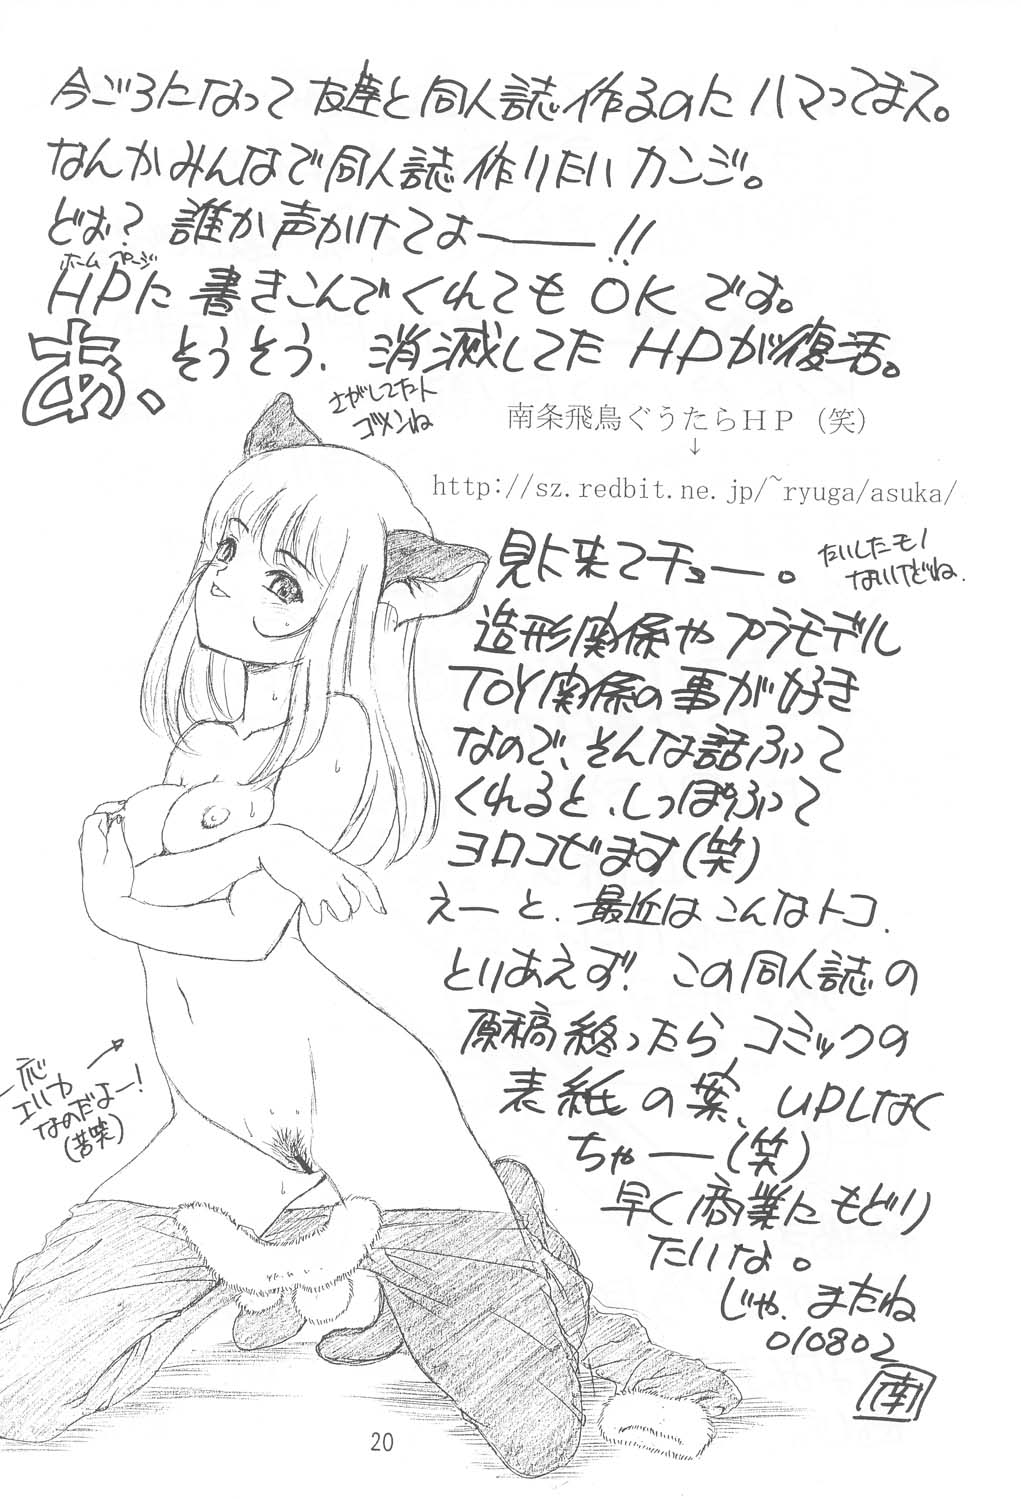 今ごろになって友達と同人誌作るのにハマってまス。
なんかみんなで同人誌作りたいカンジ。
どお？誰か声かけてよーーー!!
ホームページ
HPに書きこんでくれてもOKです。
あ、そうそう、消滅してたHPが復活。
さがしてたヒト
ゴメンね
南条飛鳥ぐうたらＨＰ（笑）
↓
http://sz.redbit.ne.jp/~ryuga/asuka/
見に来てチョー。
たいしたモノ
ないけどね.
造形関係やプラモデル
TOY関係の事が好き
なので、そんな話ふって
くれると、しっぽふって
ヨロコビます(笑)
えーと、最近はこんなトコ.
とりあえず!この同人誌の
原稿終ったら、コミックの
表紙の案、UPしなく
ちゃー(笑)
早く商業にもどり
たいな。
じゃ、またね
010802
南
一応
エリカ
なのだよー!
(苦笑)
20